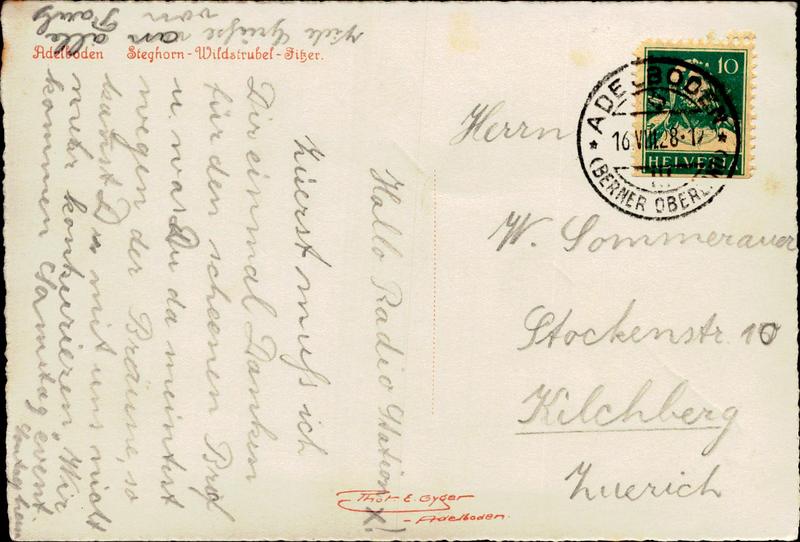 Adelboden Steghorn-Wildstrubel-Fitzer.
Hallo Radio Station X!
Zuerst muss ich
Dir einmal Danken
für den schoenen Brf
u, was Du da meintest
wegen der Bräune, so
kannst Du mit uns nicht
mehr konkurieren. Wir
kommen Samstag event.
Viele Grüsse an alle
von Pauly
Phot. E. Gyger
-Adelboden.
10
HELVETIA
ADELBODEN
16.VIII.28-17
(BERNER OBERLAND)
Herrn
W. Sommerauer
Stockenstr. 10
Kilchberg
Zuerich